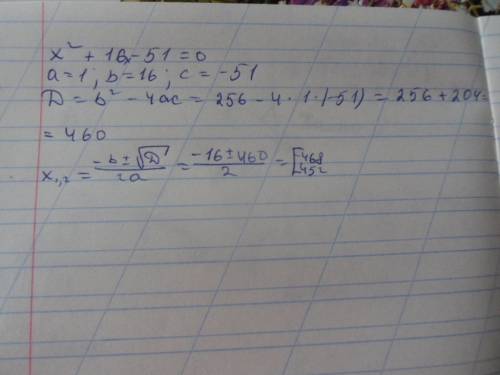 x² + 16x - 51 = 0
a = 1 ; b = 16 ; c = -51
D = b² - 4ac = 256 - 4 · 1 · (-51) = 256 + 204 =
= 460
x₁,₂ = (-b ± √D)/2a = (-16 ± 460)/2 = [468 452